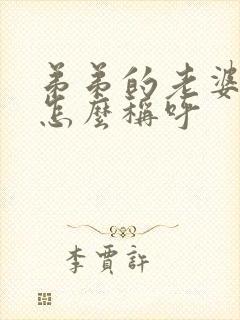 弟弟的老婆
怎麼稱呼
李賈許